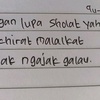 qu-
gan lupa sholat yah
chirat malaikat
ak ngajak galau.